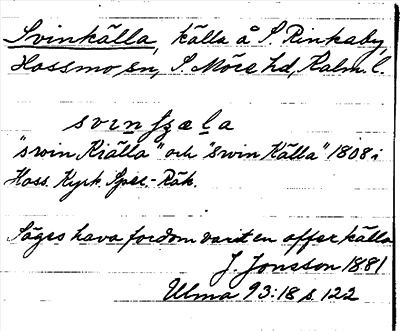 Svinkälla, källa å S. Rinkaby,
Hossmo sn, S. Möre hd, Kalm. l.
"swin Kiälla" och "swin Källa" 1808 i
Hoss. Kyrk. Spec.-Räk.
Säges hava fordom varit en offerkälla
J. Jonsson 1881
Ulma 93:18 s. 122